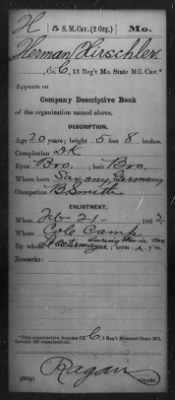 H 5 S.M. Cav. (2 Org.) Mo.
Herman Hirschler
, Co. C, 13 Reg't Mo. State Mil. Cav.*
Appears on
Company Descriptive Book
of the organization named above.
DESCRIPTION.
Age 20 years; height 5 feet 8 inches.
Complexion DK
Eyes Bro. ; hair Bro.
Where born Saxony, Germany
Occupation B. Smith
ENLISTMENT.
When Feb 21 , 1862
Where Cole Camp
By whom ; term y'rs.
Remarks:
*This organization became Co. C, 5 Reg't Missouri State Mil.
Cavalry (2d organization).
Ragan